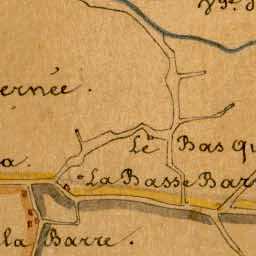 Vge. d
ernée.
Le Bas Qu
a.
La Basse Barr
la Barre.